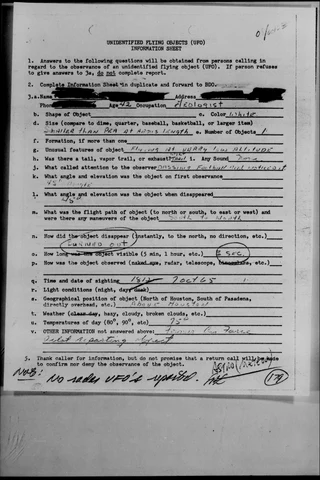 UNIDENTIFIED FLYING OBJECTS (UFO)
INFORMATION SHEET
1. Answers to the following questions will be obtained from persons calling in
regard to the observance of an unidentified flying object (UFO). If person refuses
to give answers to 3a, do not complete report.
2. Complete Information Sheet in duplicate and forward to BOO.
3.a. Name Address
Phone Age 42 Occupation Geologist
b. Shape of Object c. Color White
d. Size (compare to dime, quarter, baseball, basketball, or larger item)
Smaller than PEA at arms length e. Number of Objects 1
f. Formation, if more than one
g. Unusual features of object Flying at very low altitude
h. Was there a tail, vapor trail, or exhaust i. Any Sound None
j. What called attention to the observer
k. What angle and elevation was the object on first observance
45° angle
l. What angle and elevation was the object when disappeared
45°
m. What was the flight path of object (to north or south, to east or west) and
were there any maneuvers of the object South to North
n. How did the object disappear (instantly, to the north, no direction, etc.)
Burned out
o. How long was the object visible (5 min, 1 hour, etc.) 5 sec.
p. How was the object observed (naked eye, radar, telescope, binoculars, etc.)
q. Time and date of sighting 7 Oct 65
r. Light conditions (night, day, dusk)
s. Geographical position of object (North of Houston, South of Pasadena,
directly overhead, etc.) Above Houston
t. Weather (clear day, hazy, cloudy, broken clouds, etc.)
u. Temperatures of day (60°, 90°, etc) 75°
v. OTHER INFORMATION not answered above: Former Air Force
Pilot reporting object
3. Thank caller for information, but do not promise that a return call will be made
to confirm nor deny the observance of the object.
Note: No radar UFO's reported.
Astro (Meteor)